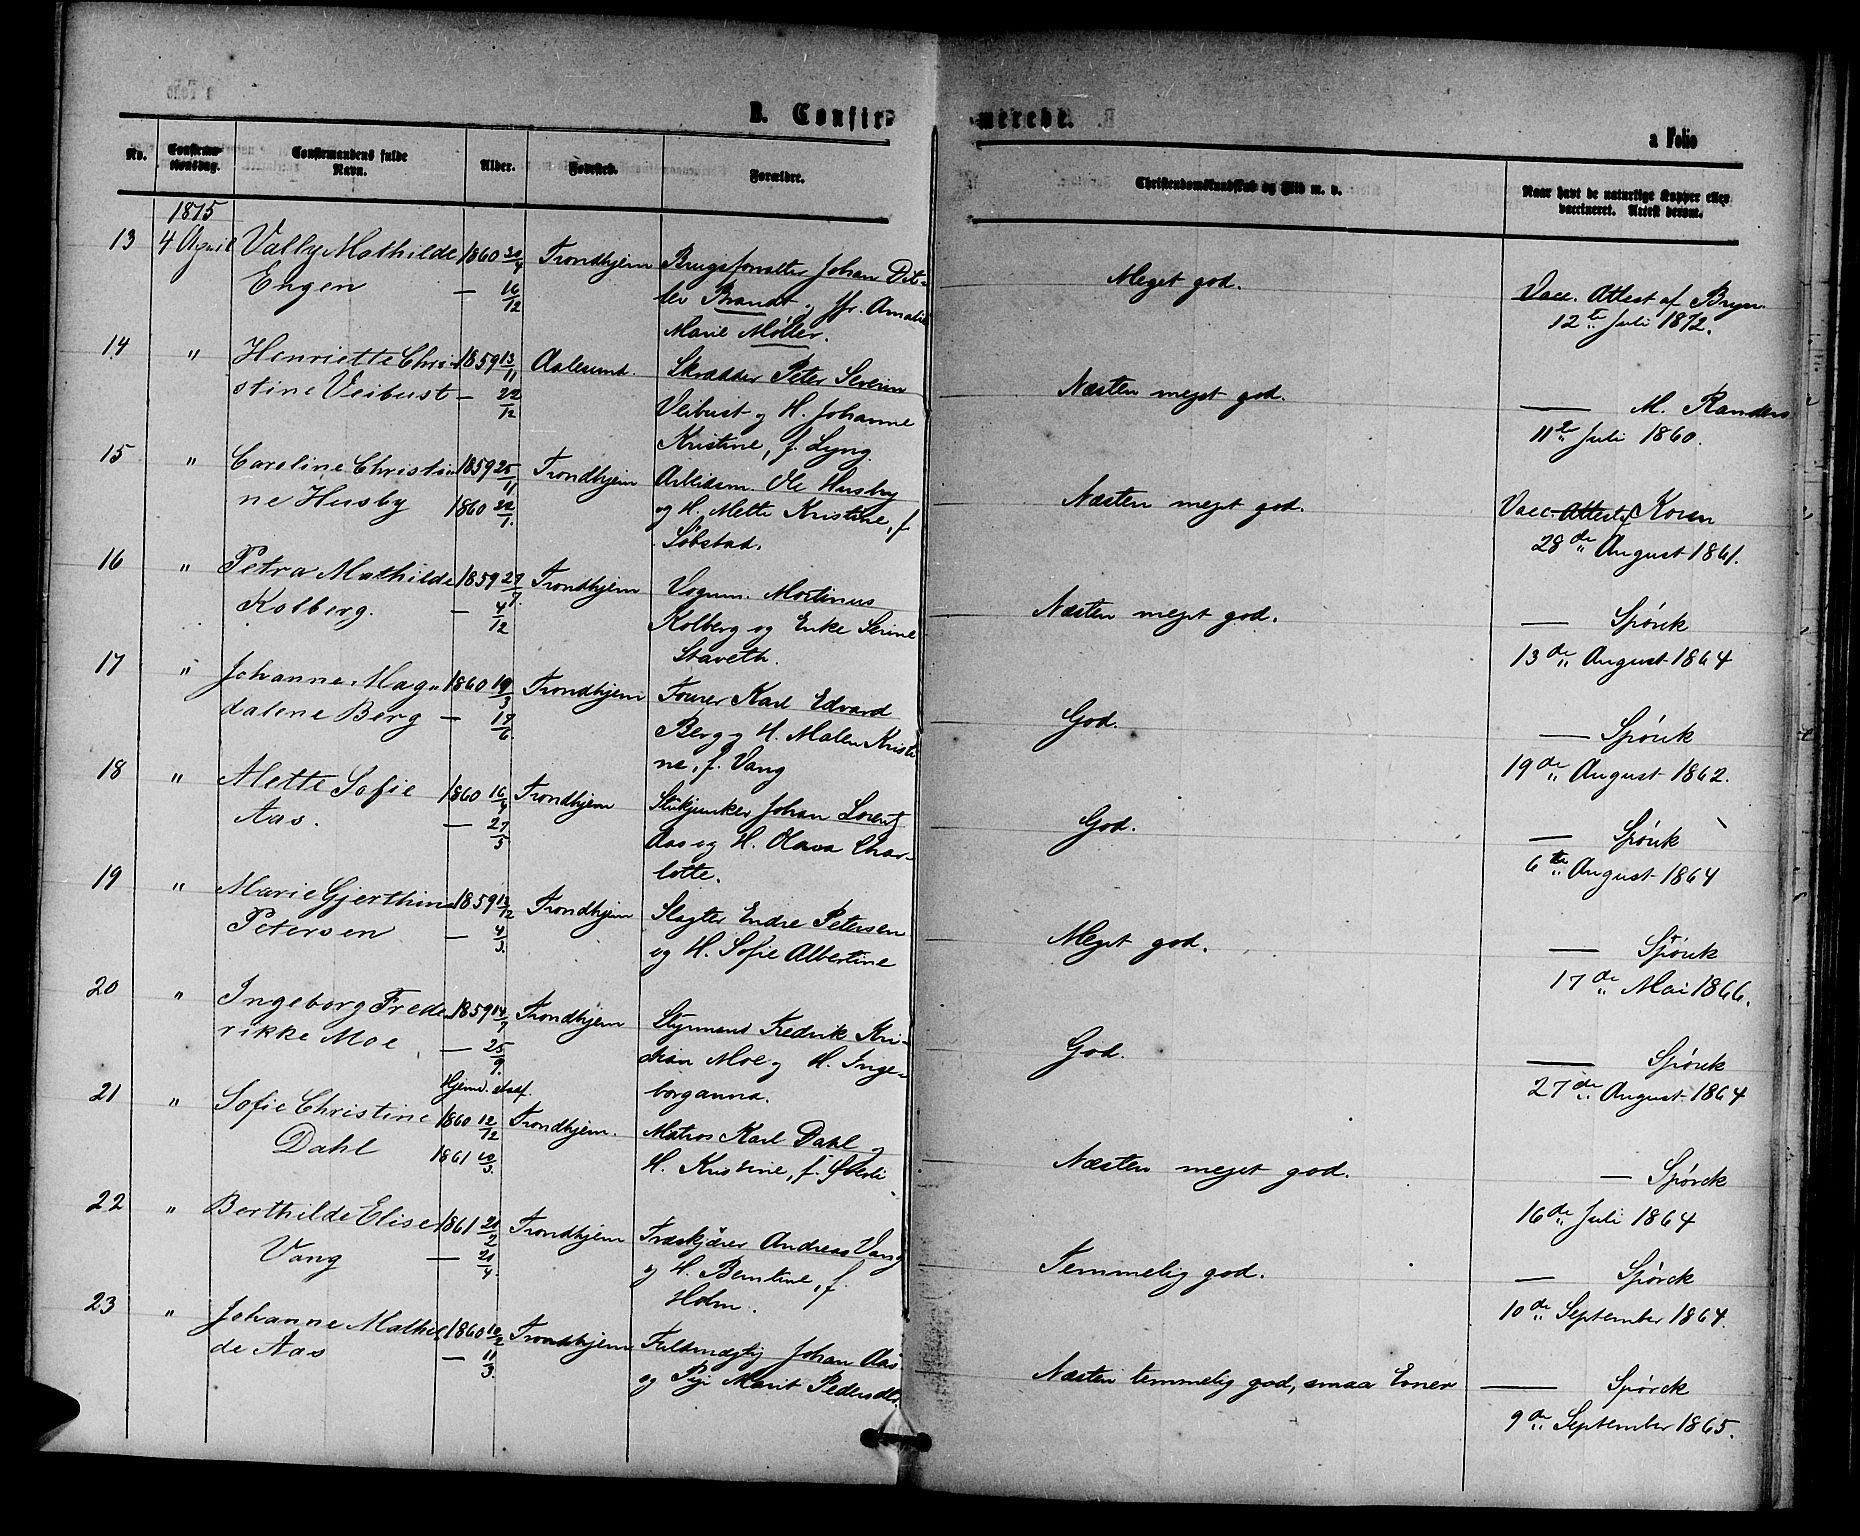 B. Confirmerede.
a Folio
No.
Confirmationsdag.
Confirmandens fulde Navn.
Alder.
Fødested.
Forældre.
Christendomskundskab og Flid m. v.
Naar havt de naturlige Kopper eller vaccineret. Attest derom.
1875
13 4 April Vally Mathilde 1860 30/4 Trondhjem Brugsforvalter Johan Dit-
Engen — 16/12 lev Brandt og Jfr. Amalie
Marie Møller.
Meget god.
Vacc. Attest af Bryn
12te Juli 1872.
14 " Henriette Chri- 1859 13/11 Aalesund. Skrædder Peter Severin
stine Veibust — 22/12 Veibust og H. Johanne
Kristine, f. Lyng.
Næsten meget god.
— M. Randers
11te Juli 1860.
15 " Caroline Christi- 1859 25/11 Trondhjem Arbeidsm. Ole Husby
ne Husby 1860 22/1. og H. Mette Kristine, f.
Søbstad.
Næsten meget god.
Vacc. Attest af Koren
28de August 1861.
16 " Petra Mathilde 1859 Trondhjem Vognm. Martinus
Kolberg. — 4/12 Kolberg og Enke Serine
Staveth.
Næsten meget god.
— Spörck
13de August 1864
17 " Johanne Mag- 1860 19/3 Trondhjem Fourer Karl Edvard
dalene Berg — 17/6. Berg og H. Malen Kristi
ne, f. Vang
God.
— Spörck
19de August 1862.
18 " Mette Sofie 1860 16/4 Trondhjem Stykjunker Johan Lorentz
Aas. — 27/5 Aas og H. Olava Char-
lotte.
God.
— Spörck
6te August 1864
19 " Marie Gjerthine 1859 Trondhjem Slagter Endre Petersen
Petersen — 4/3. og H. Sofie Albertine
Meget god.
— Spörck
17de Mai 1866.
20 " Ingeborg Frede 1859 14/7 Trondhjem Styrmand Fredrik Kri-
rikke Moe — 25/9. stian Moe og H. Inge-
Hjemd. borganna.
God.
— Spörck
27de August 1864
21 " Sofie Christine 1860 12/12 Trondhjem. Matros Karl Dahl og
Dahl 1861 10/3. H. Kristine, f.
Næsten meget god.
— Spörck
16de Juli 1864
22 " Berthilde Elise 1861 20/2 Trondhjem Træskjærer Andreas Vang
Vang — 21/4. og H. Berntine, f.
Holm.
Temmelig god.
— Spörck
10de September 1864.
23 " Johanne Mathil 1860 10/2 Trondhjem Fuldmægtig Johan Aas
de Aas — 11/3. og Pige Marit Pedersdtr.
Næsten temmelig god, smaa Evner
— Spörck
9de September 1865.